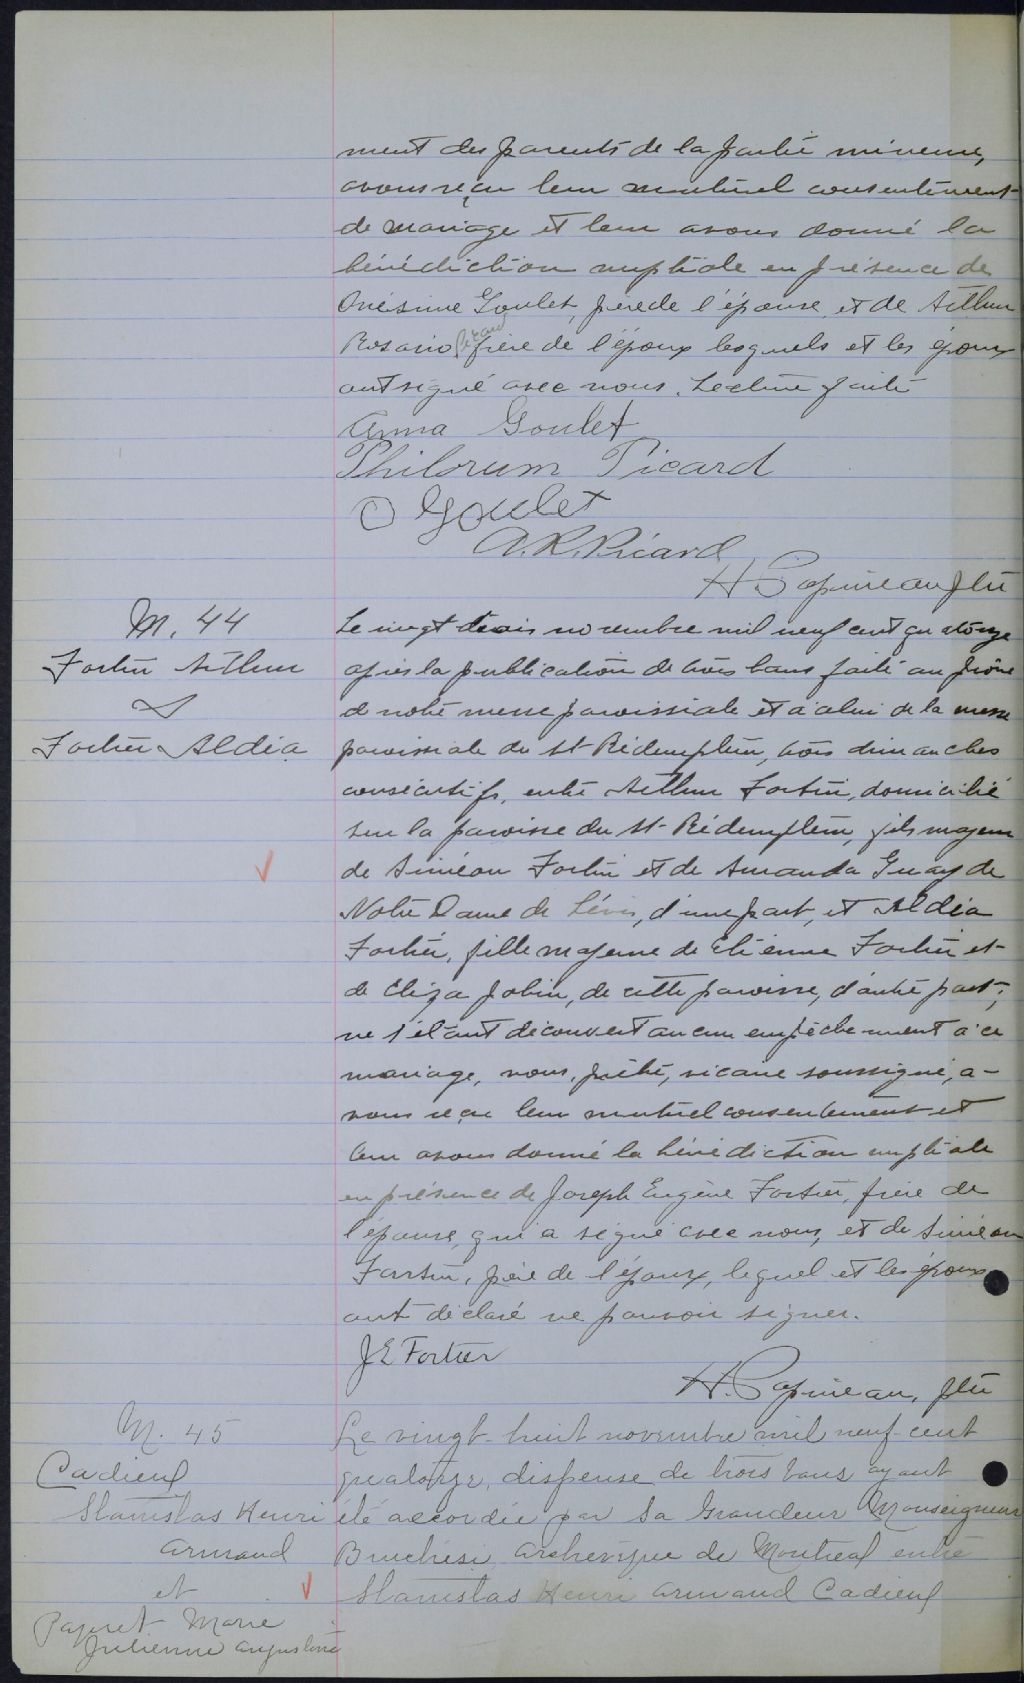 ment des parents de la partie mineure,
avons reçu leur mutuel consentement
de mariage et leur avons donné la
bénédiction nuptiale en présence de
Onésime Goulet, père de l'épouse et de Arthur
Rosario Picard frère de l'époux lesquels et les époux
ont signé avec nous. Lecture faite
Anna Goulet
Philorum Picard
O Goulet
A. R. Picard
H. Papineau ptre
M. 44
Fortin Arthur
&
Fortier Aldéa
Le vingt trois novembre mil neuf cent quatorze
après la publication de trois bans faite au prône
de notre messe paroissiale et à celui de la messe
paroissiale du St Rédempteur, trois dimanches
consécutifs, entre Arthur Fortin, domicilié
sur la paroisse du St-Rédempteur, fils majeur
de Siméon Fortin et de Amanda Guay de
Notre Dame de Lévis, d'une part, et Aldéa
Fortier, fille majeure de Etienne Fortier et
de Eliza Jobin, de cette paroisse, d'autre part;
ne s'étant découvert aucun empêchement à ce
mariage, nous, prêtre, vicaire soussigné, a-
vons reçu leur mutuel consentement et
leur avons donné la bénédiction nuptiale
en présence de Joseph Eugène Fortier, frère de
l'épouse, qui a signé avec nous, et de Siméon
Fortin, père de l'époux, lequel et les époux
ont déclaré ne pouvoir signer.
J E Fortier
H. Papineau, ptre
M. 45
Cadieux
Stanislas Henri
Armand
et
Paquet Marie
Julienne Augustine
Le vingt-huit novembre mil neuf-cent
quatorze, dispense de trois bans ayant
été accordée par Sa Grandeur Monseigneur
Bruchési, archevêque de Montréal entre
Stanislas Henri Armand Cadieux